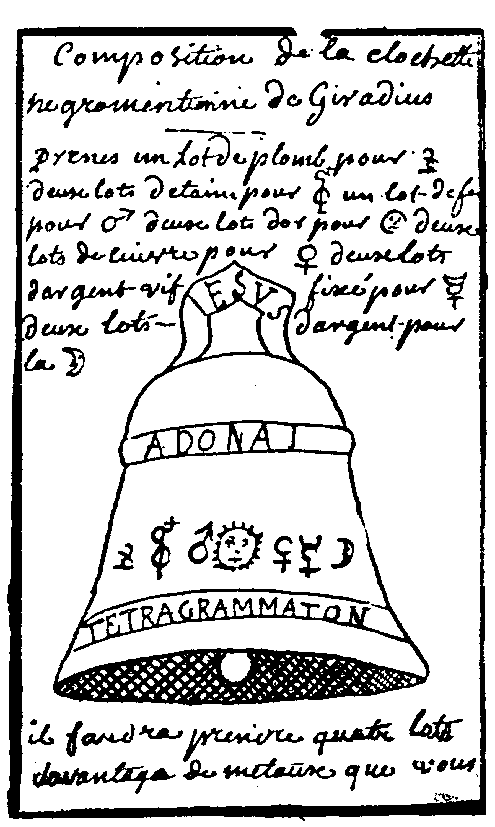 Composition de la clochette
negromentienne de Giradius
prenes un lot de plomb pour ♄
deuxe lots detain pour ♃ un lot de fer
pour ♂ deuxe lots dor pour ☉ deuxe
lots de cuivre pour ♀ deuxe lots
dargent vif fixé pour ☿
deuxe lots — dargent pour
la ☽
IESUS
ADONAI
♄ ♃ ♂ ☉ ♀ ☿ ☽
TETRAGRAMMATON
il faudra prendre quatre lots
davantage de metause que vous